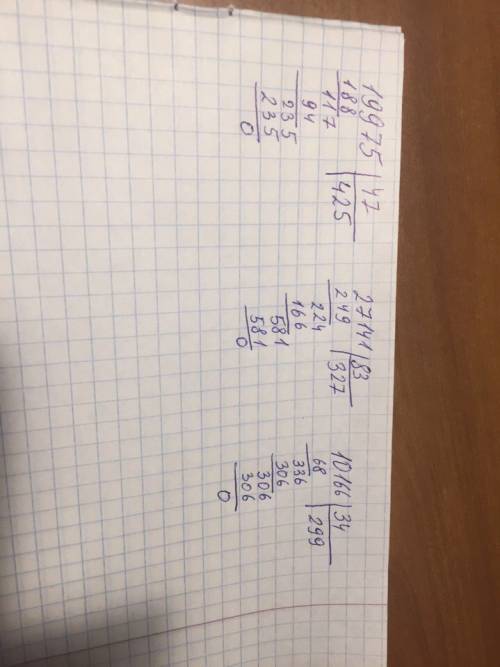 19975 | 47
188 | 425
117
94
235
235
0
27141 | 83
249 | 327
224
166
581
581
0
10166 | 34
68 | 299
336
306
306
306
0